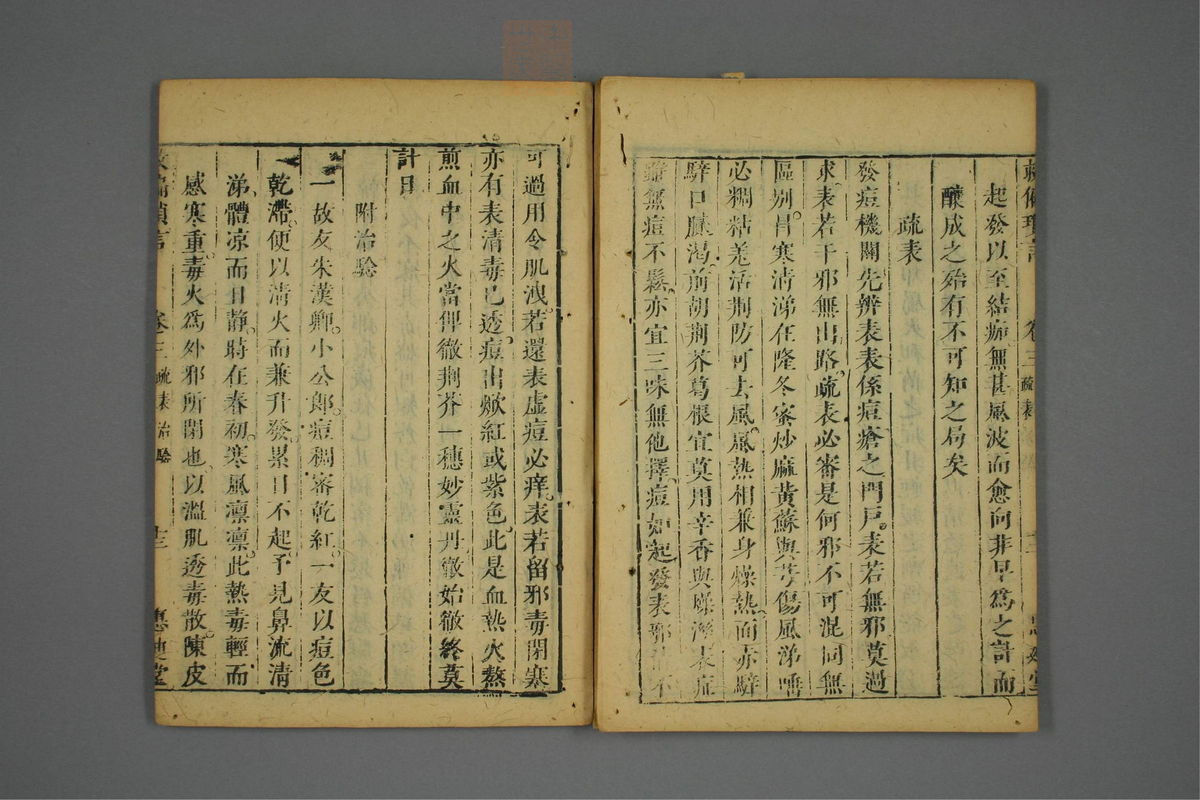 起發以至結痂無甚風波而愈向非早爲之計而
釀成之殆有不可知之局矣
疏表
發痘機關先辨表表係痘瘡之門戸表若無邪莫過
求表若干邪無出路疏表必審是何邪不可混同無
區別冒寒清涕在隆冬蜜炒麻黃蘇與芎傷風涕嚏
必稠粘羌活荆防可去風風熱相兼身燥熱面赤
口臊渴前胡荆芥葛根宜莫用辛香與燥澀表症
雖無痘不鬆亦宜三味無他擇痘如起發表邪 不
卷三 疏表
可過用令肌洩若還表虛痘必痒表若留邪毒閉塞
亦有表清毒已透痘出焮紅或紫色此是血熱火熬
煎血中之火當俾徹荆芥一穗妙靈丹徹始徹終莫
計日
附治驗
一故友朱漢卿小公郎痘稠密乾紅一友以痘色
乾滯便以清火而兼升發累日不起予見鼻流清
涕體凉而目靜時在春初寒風凛凛此熱毒輕而
感寒重毒火爲外邪所閉也以溫肌透毒散陳皮
卷三 疏表 治驗 十三